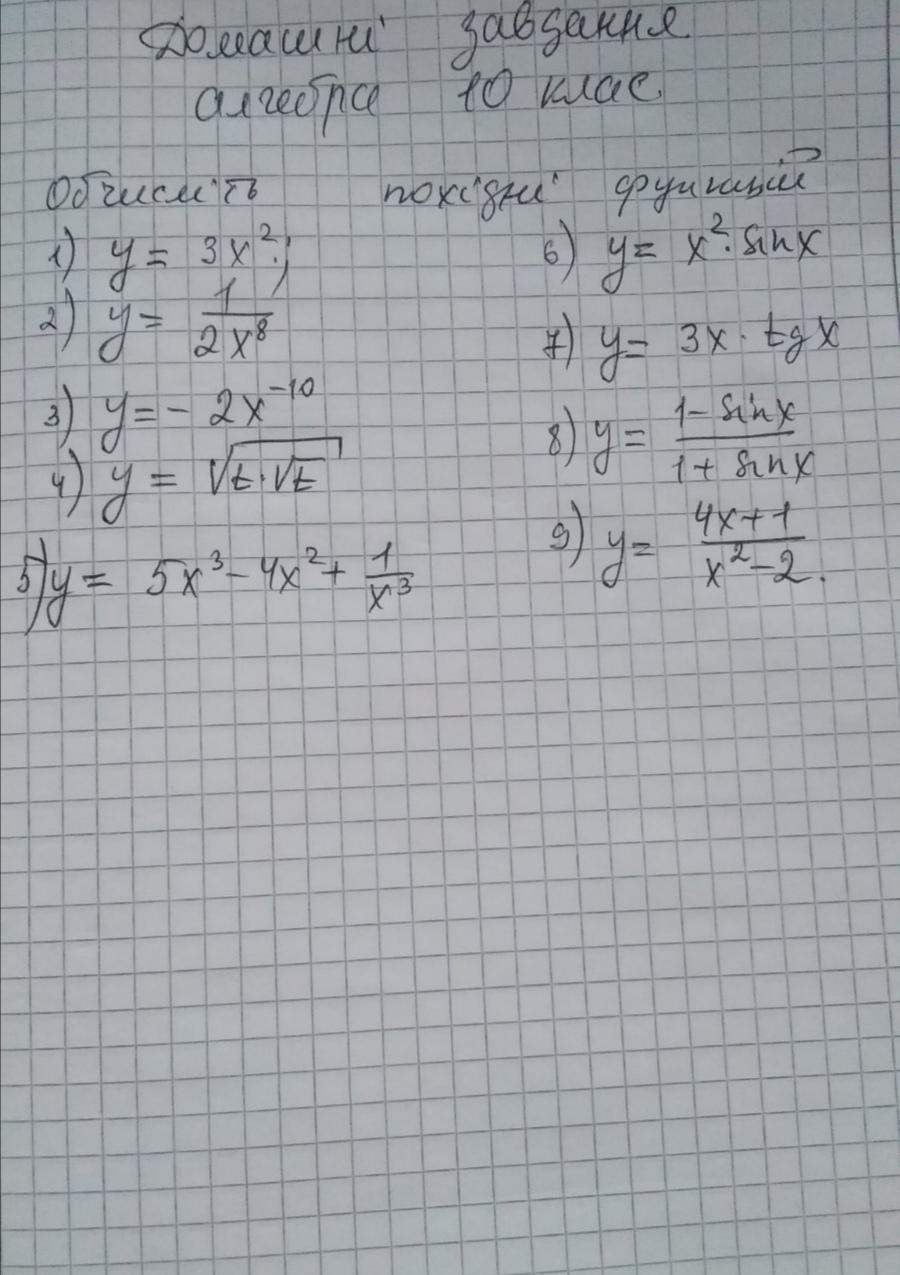 Домашні завдання
алгебра 10 клас
Обчисліть похідні функцій
1) y = 3x²;
2) y = 1/(2x⁸)
3) y = - 2x⁻¹⁰
4) y = √(t·√t)
5) y = 5x³ - 4x² + 1/x³
6) y = x²·sinx
7) y = 3x · tgx
8) y = (1 - sinx)/(1 + sinx)
9) y = (4x+1)/(x²-2).